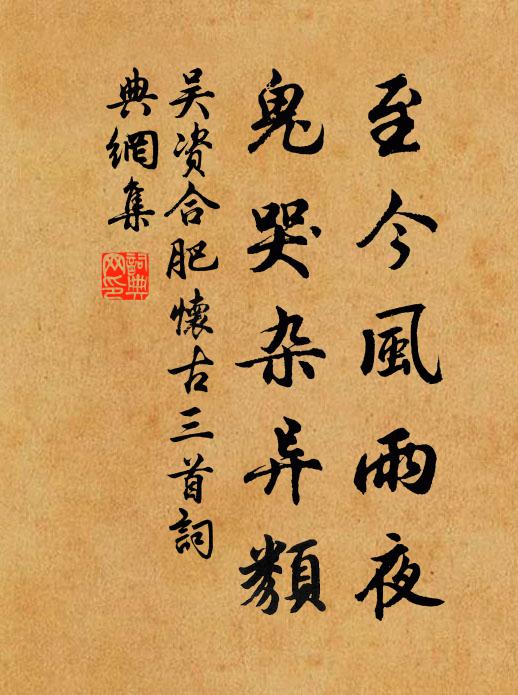 至今風雨夜
鬼哭杂异類
吴资合肥懷古三首詞
典網集
詞典網印